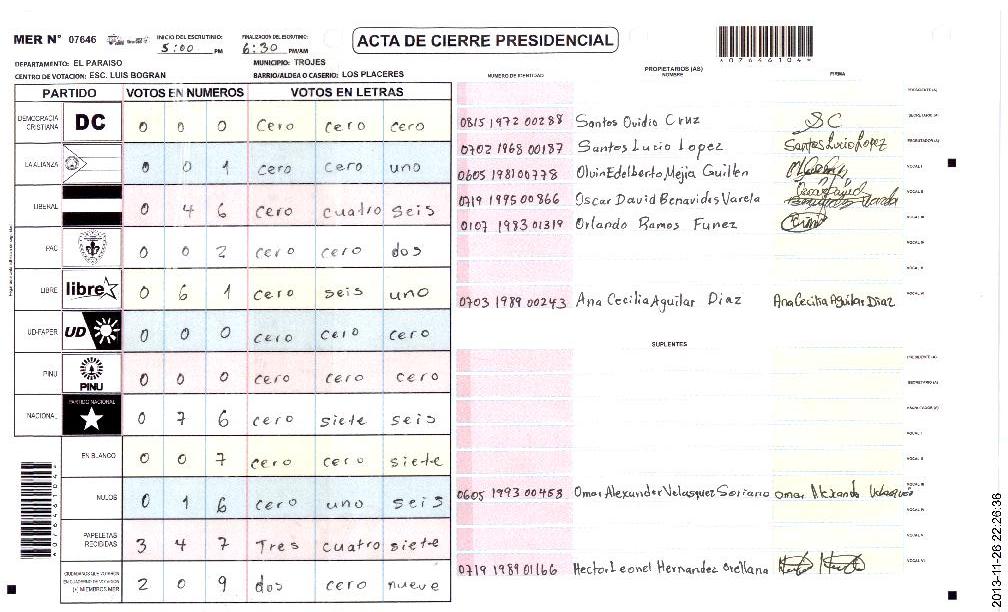 MER N° 07646
INICIO DEL ESCRUTINIO: 5:00 PM
FINALIZACION DEL ESCRUTINIO: 6:30 PM/AM
ACTA DE CIERRE PRESIDENCIAL
A07646104
DEPARTAMENTO: EL PARAISO
MUNICIPIO: TROJES
CENTRO DE VOTACION: ESC. LUIS BOGRAN
BARRIO/ALDEA O CASERIO: LOS PLACERES
PARTIDO VOTOS EN NUMEROS VOTOS EN LETRAS
DEMOCRACIA CRISTIANA DC 0 0 0 cero cero cero
LA ALIANZA 0 0 1 cero cero uno
LIBERAL 0 4 6 cero cuatro seis
PAC 0 0 2 cero cero dos
LIBRE libre 0 6 1 cero seis uno
UD-FAPER UD 0 0 0 cero cero cero
PINU PINU 0 0 0 cero cero cero
NACIONAL PARTIDO NACIONAL 0 7 6 cero siete seis
EN BLANCO 0 0 7 cero cero siete
NULOS 0 1 6 cero uno seis
PAPELETAS RECIBIDAS 3 4 7 Tres cuatro siete
CIUDADANOS QUE VOTARON EN CUADERNO DE VOTACION (+) MIEMBROS MER 2 0 9 dos cero nueve
A07646104
NUMERO DE IDENTIDAD
PROPIETARIOS (AS)
NOMBRE
FIRMA
PRESIDENTE (A)
0815 1972 00288 Santos Ovidio Cruz SC SECRETARIO (A)
0702 1968 00187 Santos Lucio Lopez Santos Lucio Lopez ESCRUTADOR (A)
0605 1981 00778 Olvin Edelberto Mejia Guillen VOCAL I
0719 1995 00866 Oscar David Benavides Varela VOCAL II
0107 1983 01319 Orlando Ramos Funez VOCAL III
VOCAL IV
VOCAL V
0703 1989 00243 Ana Cecilia Aguilar Diaz Ana Cecilia Aguilar Diaz VOCAL VI
SUPLENTES
PRESIDENTE (A)
SECRETARIO (A)
ESCRUTADOR (A)
VOCAL I
VOCAL II
0605 1993 00458 Omar Alexander Velasquez Soriano VOCAL III
VOCAL IV
VOCAL V
0719 1989 01166 Hector Leonel Hernandez Orellana VOCAL VI
2013-11-26 22:26:36